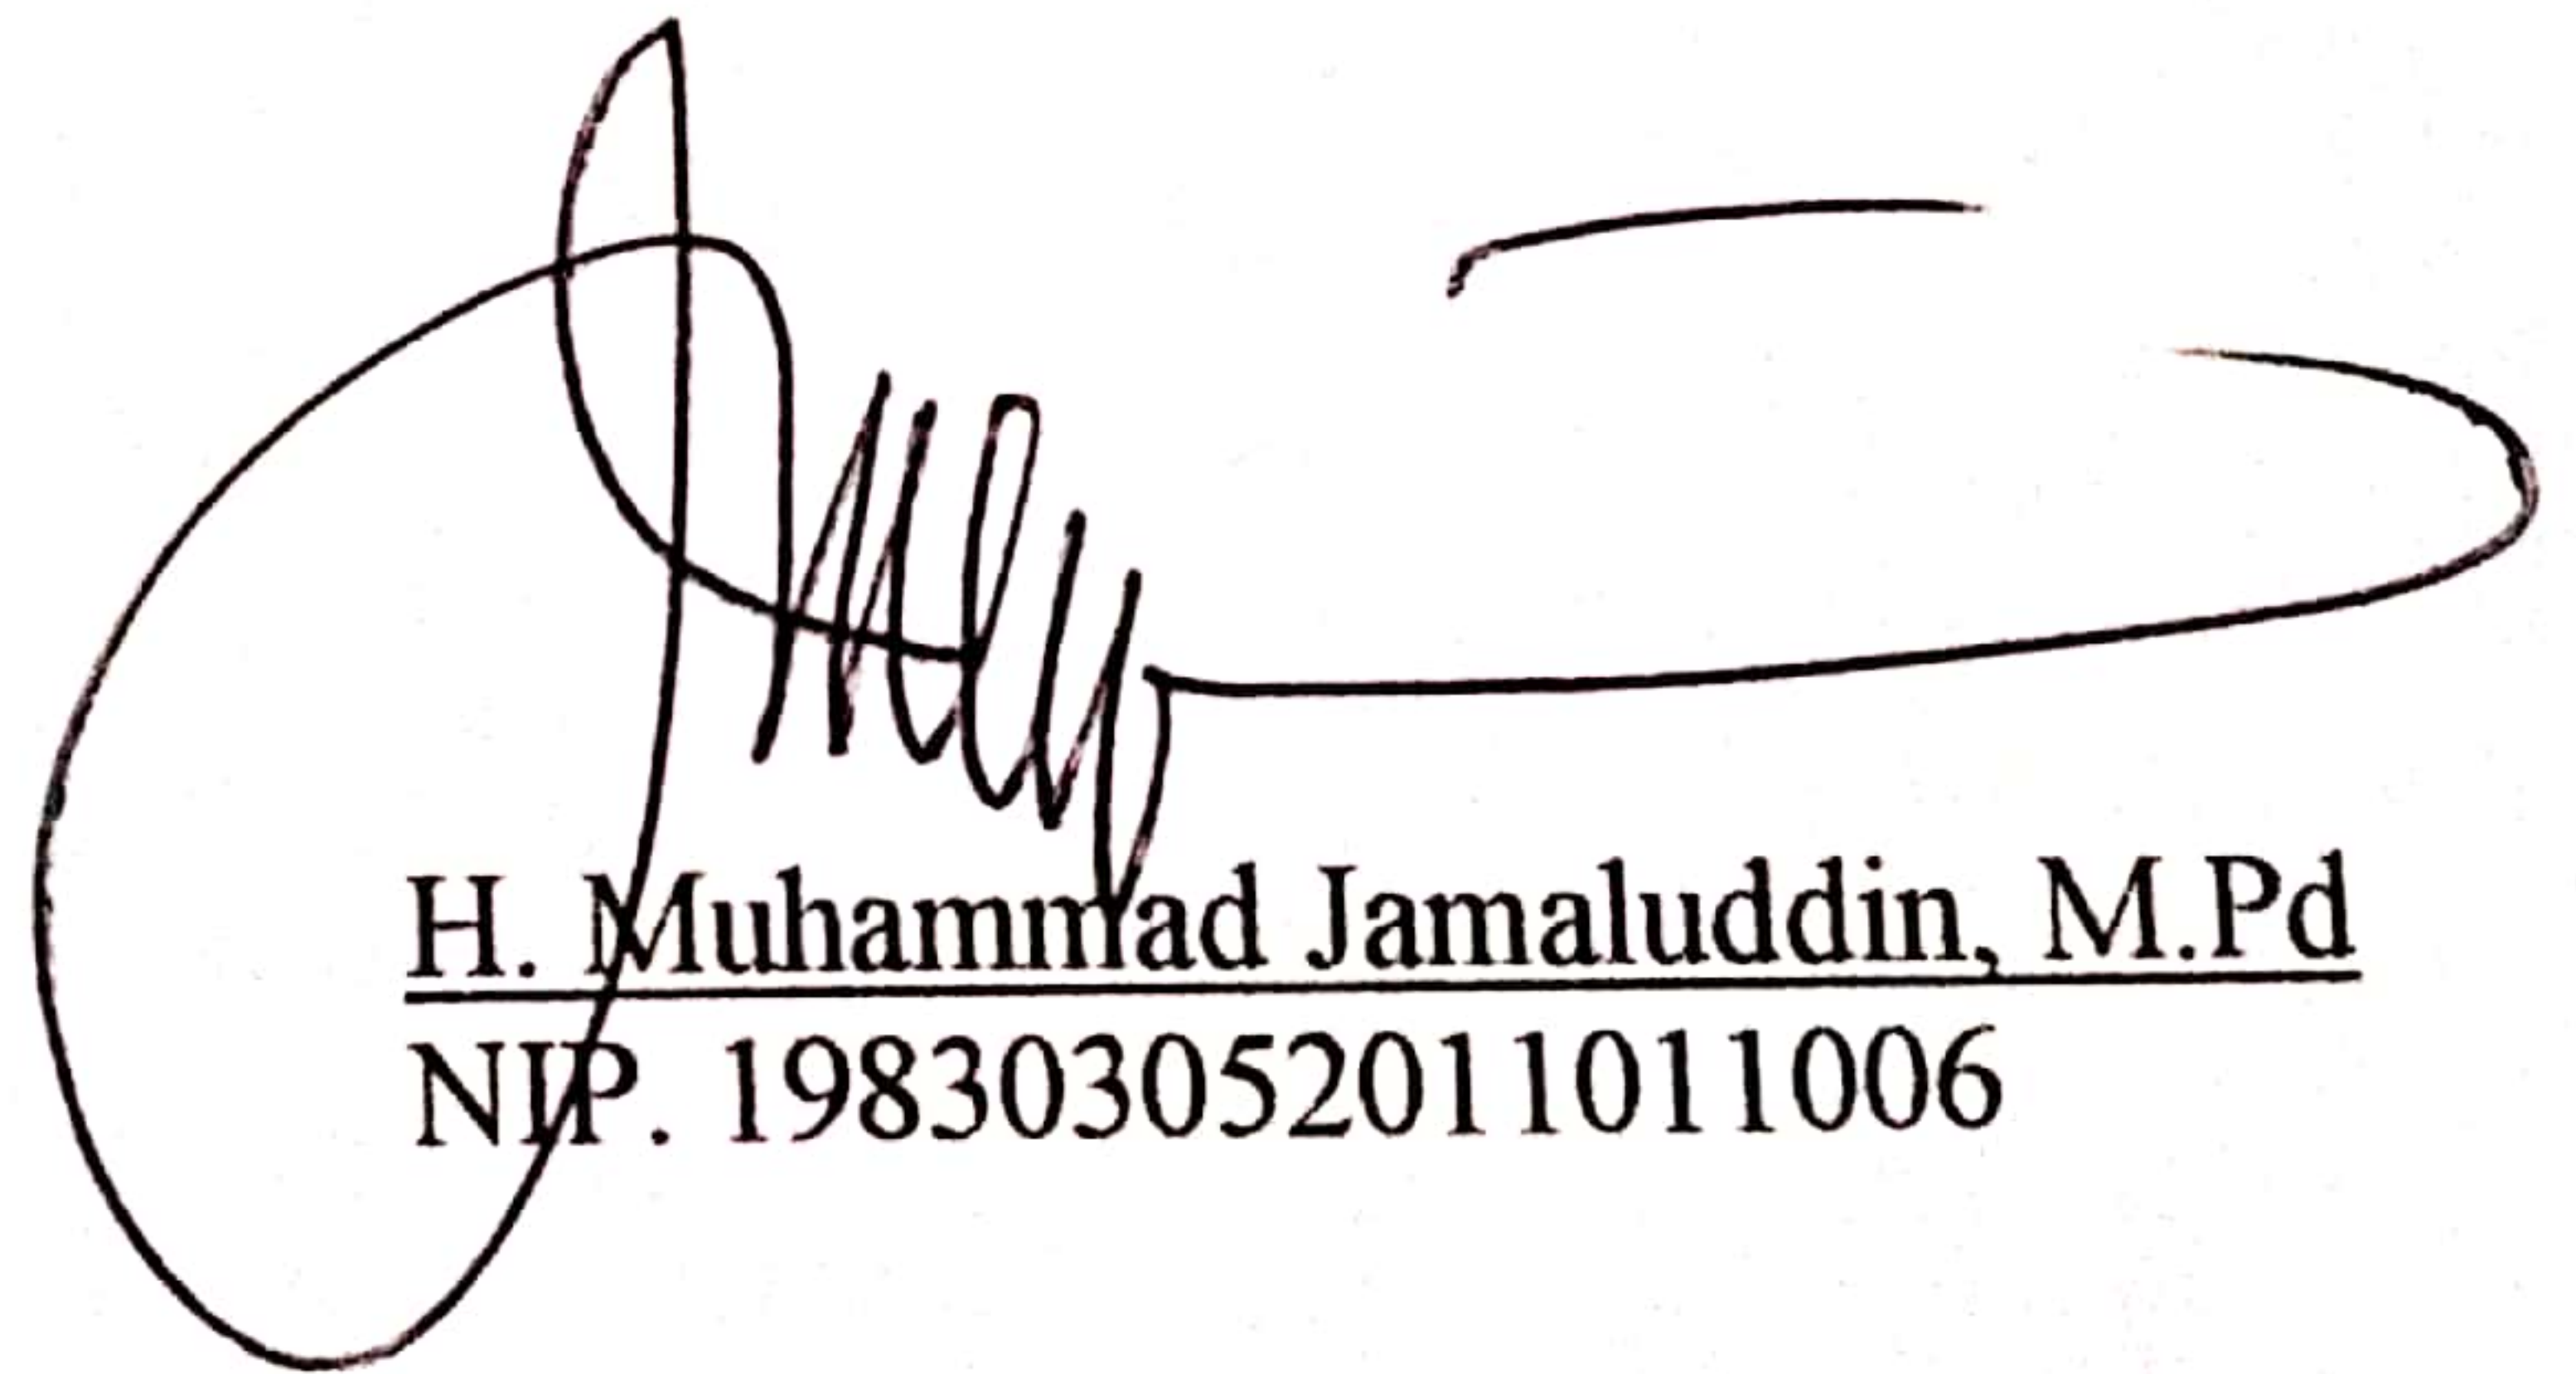 H. Muhammad Jamaluddin, M.Pd
NIP. 198303052011011006